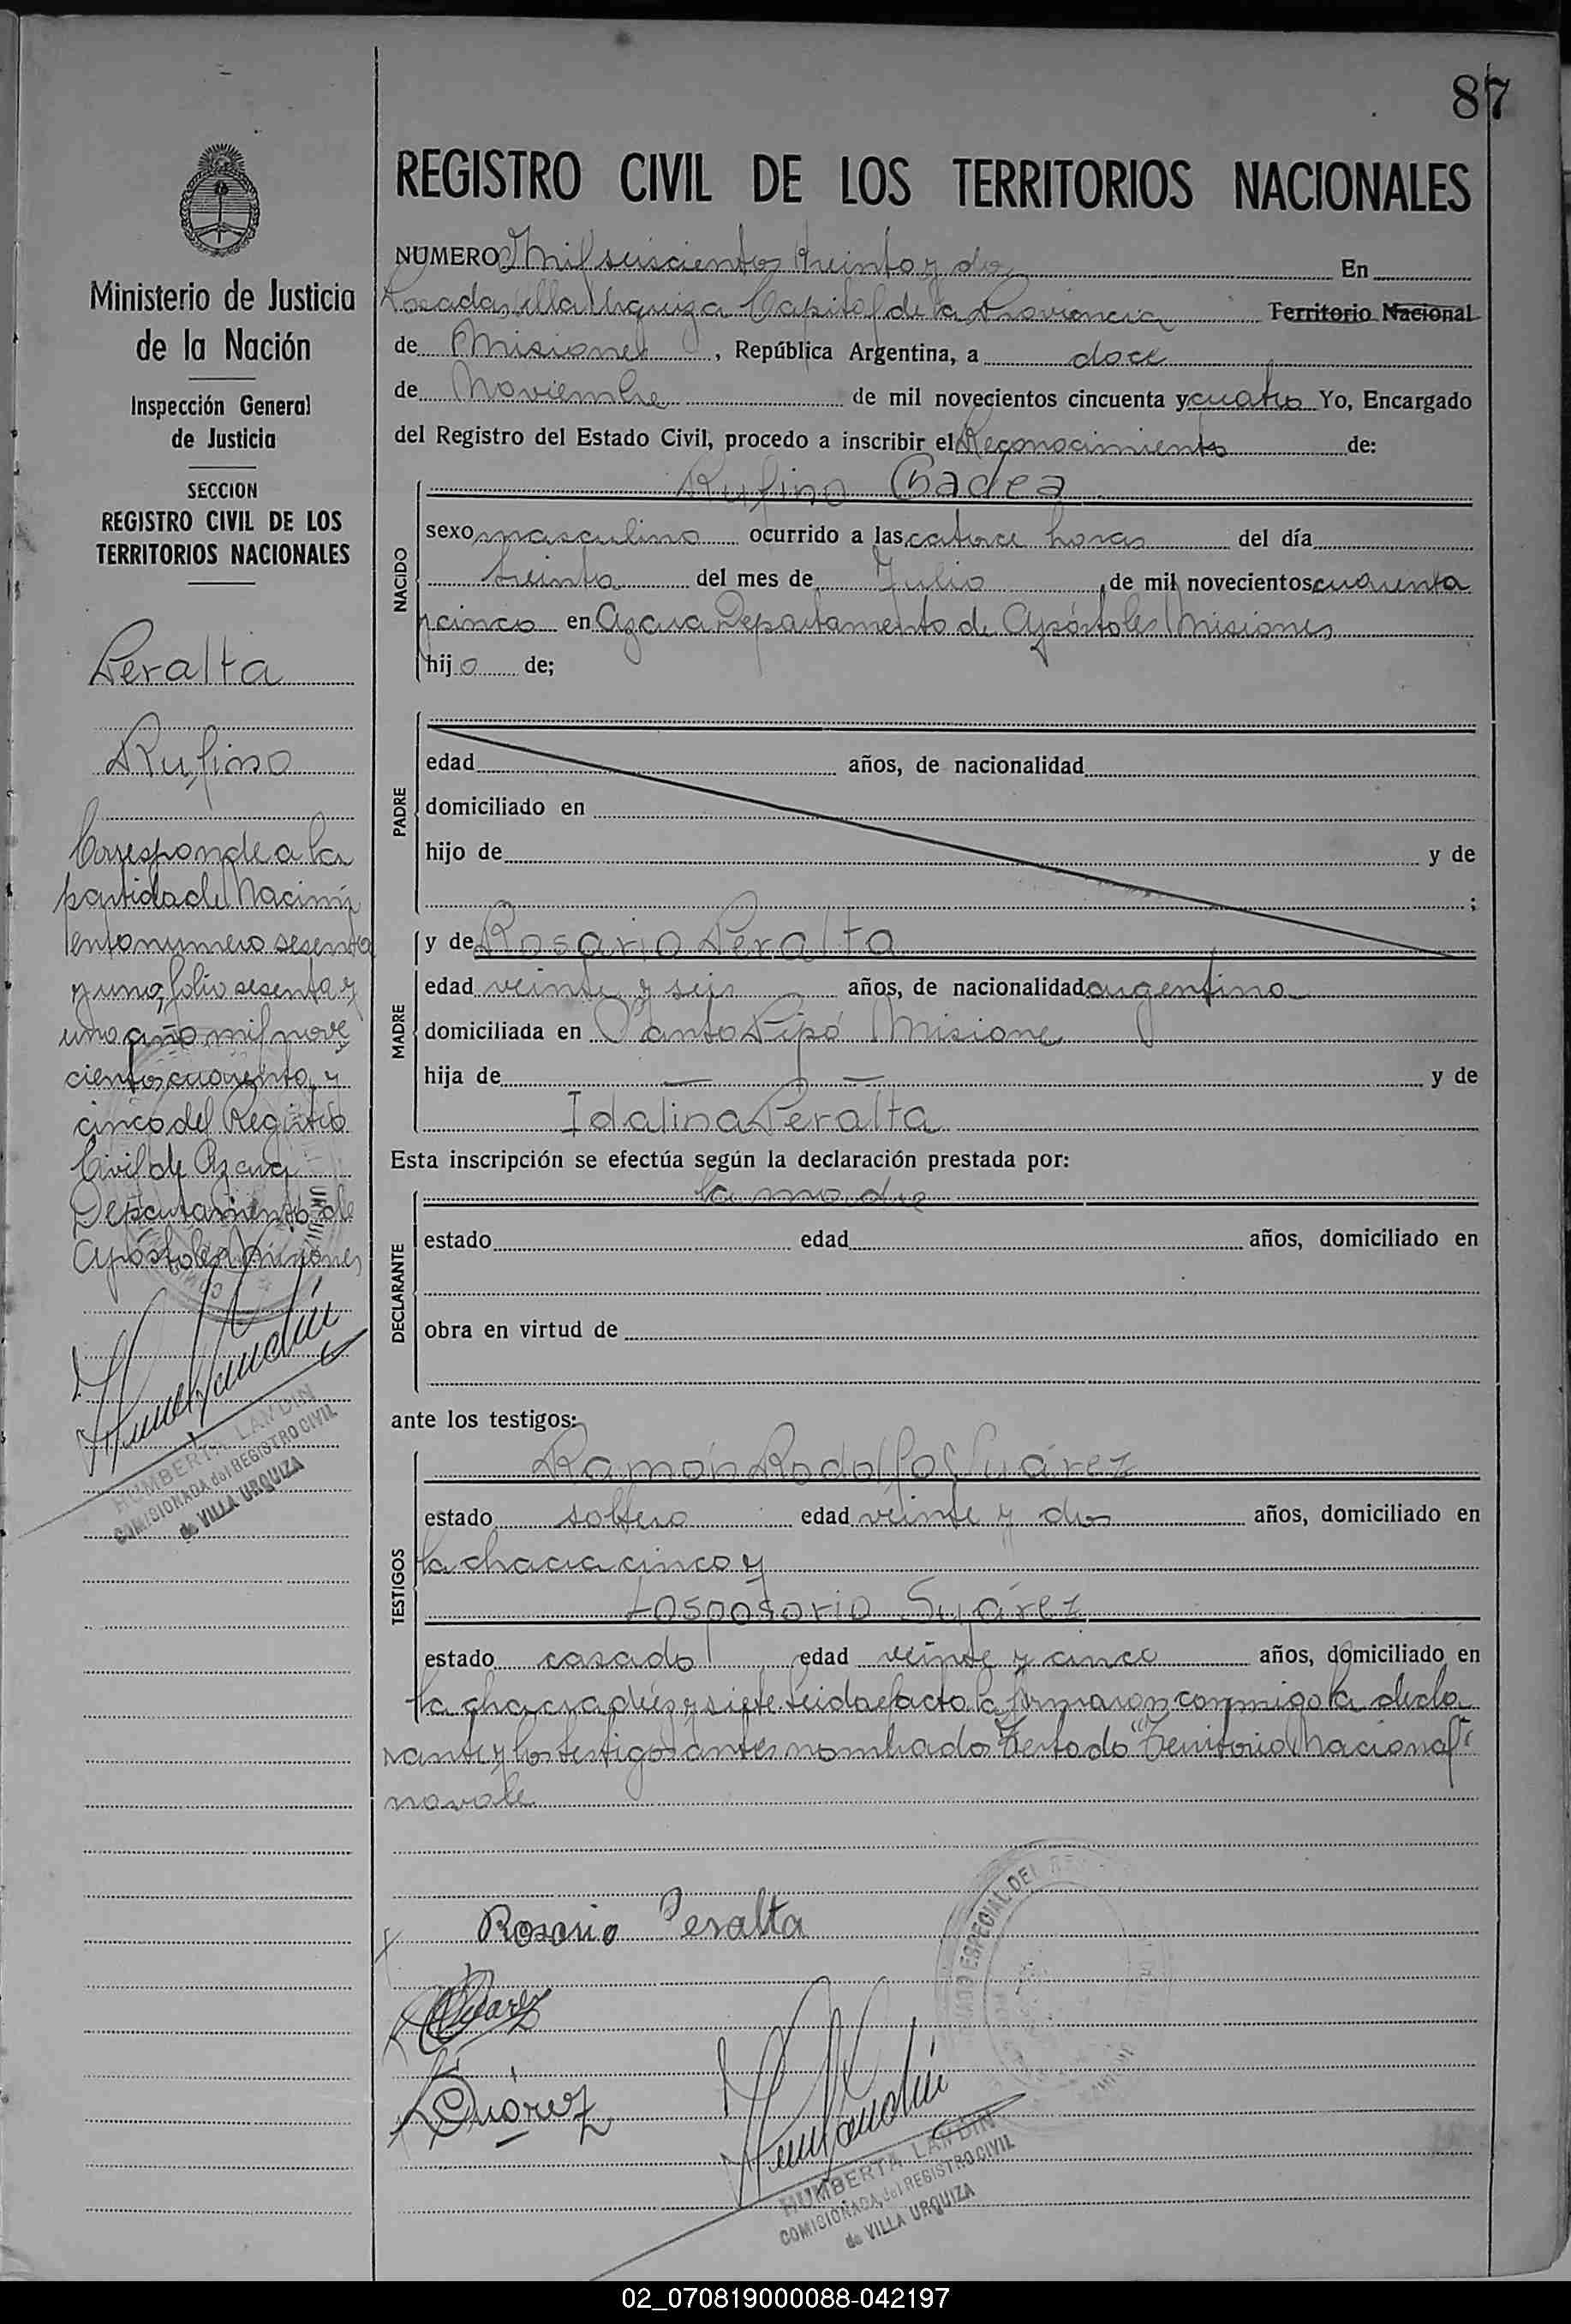 87
REGISTRO CIVIL DE LOS TERRITORIOS NACIONALES
NUMERO Mil seiscientos treinta y dos En
Posadas Villa Urquiza Capital de la Provincia Territorio Nacional
de Misiones, República Argentina, a doce
de Noviembre de mil novecientos cincuenta y cuatro Yo, Encargado
del Registro del Estado Civil, procedo a inscribir el Reconocimiento de:
NACIDO
Rufino Gadea
sexo masculino ocurrido a las catorce horas del día
treinta del mes de Julio, de mil novecientos cuarenta
y cinco en Azara Departamento de Apóstoles Misiones
hijo de;
PADRE
edad años, de nacionalidad
domiciliado en
hijo de y de
;
MADRE
y de Rosario Peralta
edad veinte y seis años, de nacionalidad argentina
domiciliada en Santo Pipó Misiones
hija de — — y de
Idalina Peralta
Esta inscripción se efectúa según la declaración prestada por:
DECLARANTE
la madre
estado edad años, domiciliado en
obra en virtud de
ante los testigos:
TESTIGOS
Ramón Rodolfo Suárez
estado soltero edad veinte y dos años, domiciliado en
la chacra cinco y
Suárez
estado casado edad veinte y cinco años, domiciliado en
la chacra diez y siete. Leida el acta la firmaron conmigo la decla
rante y los testigos antes nombrados Testado "Territorio Nacional"
no vale
Rosario Peralta
Suarez
Suárez
HUMBERTA LANDIN
COMISIONADA del REGISTRO CIVIL
de VILLA URQUIZA
Ministerio de Justicia
de la Nación
Inspección General
de Justicia
SECCION
REGISTRO CIVIL DE LOS
TERRITORIOS NACIONALES
Peralta
Rufino
Corresponde a la
partida de Nacimi
ento numero sesenta
y uno, folio sesenta y
uno año mil nove
cientos cuarenta y
cinco del Registro
Civil de Azara
Departamento de
Apostoles Misiones
HUMBERTA LANDIN
COMISIONADA del REGISTRO CIVIL
de VILLA URQUIZA
02_070819000088-042197